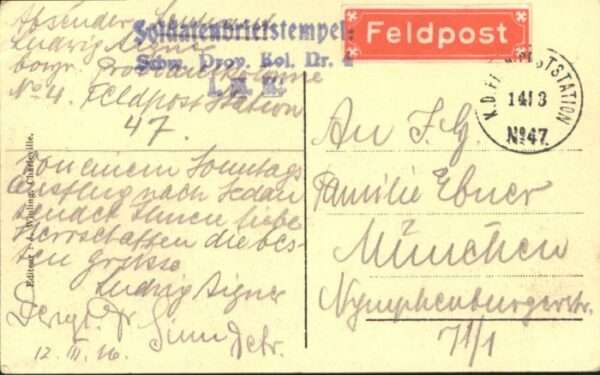 Absender
Ludwig Aigner
bayr. Proviantkolonne
No 4. Feldpoststation
47.
Soldatenbriefstempel:
Schw. Prov. Kol. Nr. 4
I. A. K.
Feldpost
14/3
No 47
Von einem Sonntags
ausflug nach Sedan
sendet Ihnen liebe
Herrschaften die bes-
ten grüsse
Ludwig Aigner
12. III. 16.
An F. G.
Familie Ebner
München
Nymphenburgerstr.
71/1
Charleville.